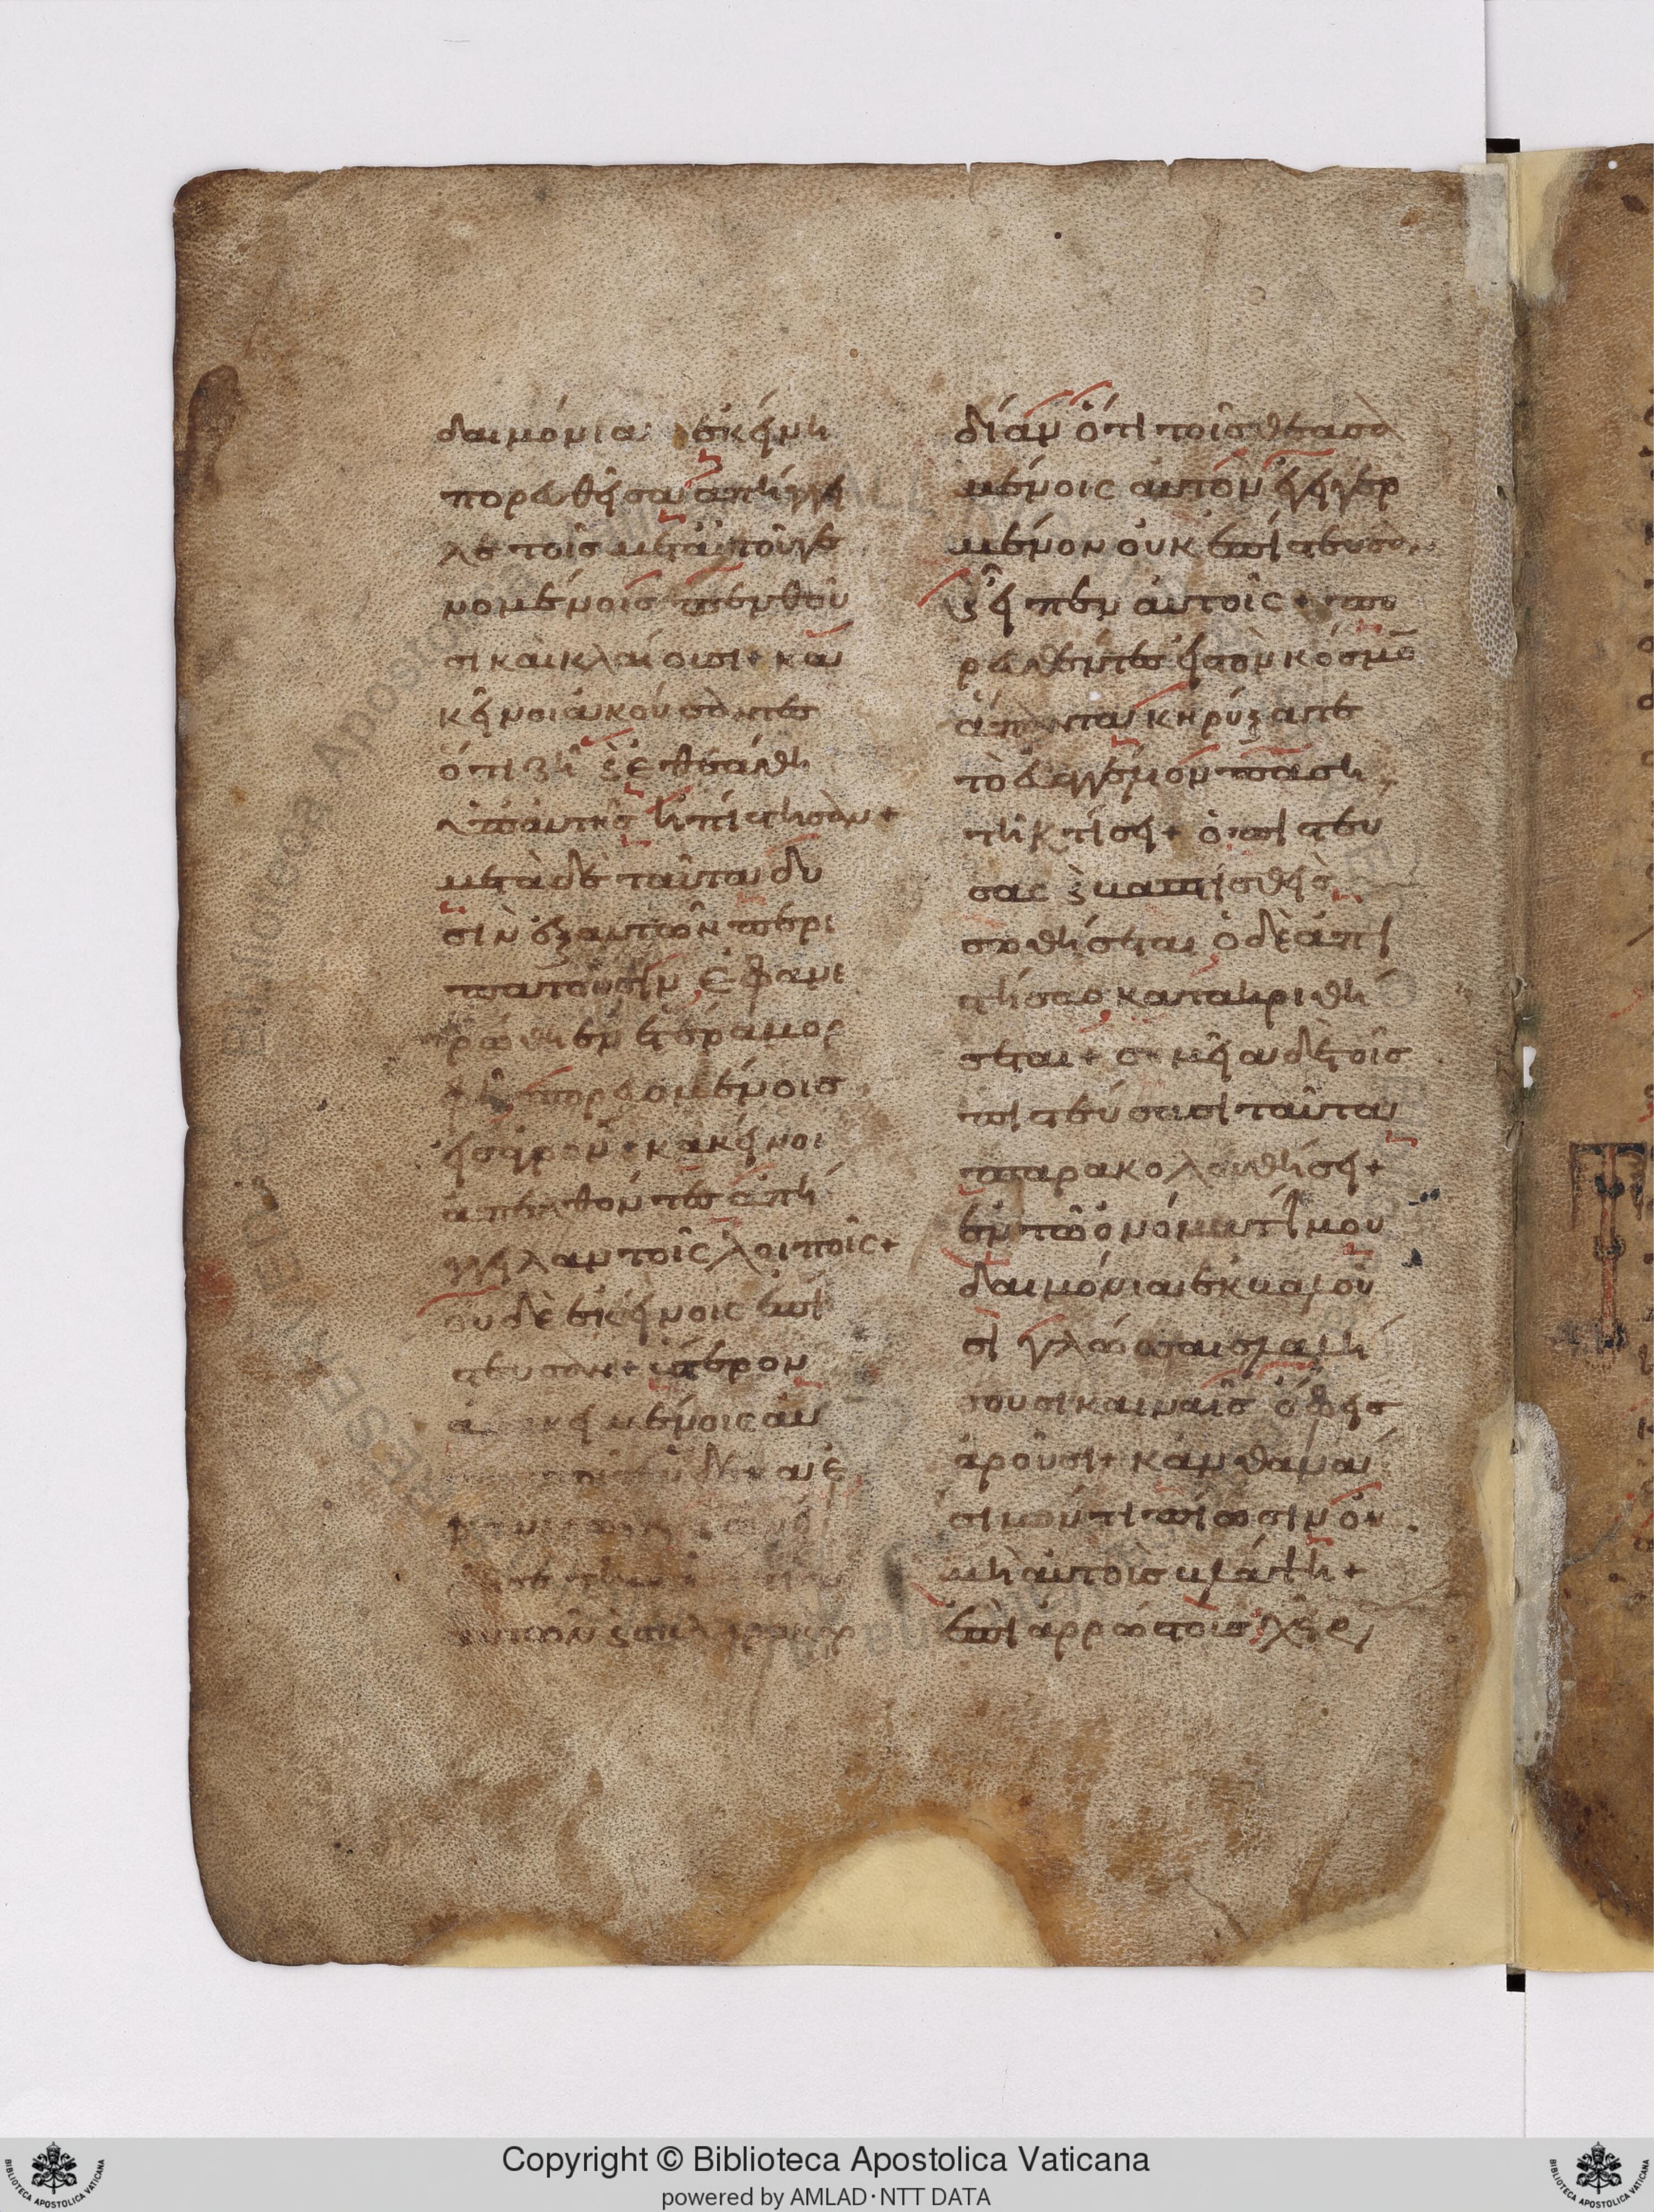 δαιμόνια εκείνη
πορευθεῖσα απήγγει
λε τοῖς μετ αυτοῦ γε
νομένοις πενθοῦ
σι καὶ κλαίουσι + κα
κεῖνοι ἀκούσαντες
ότι ζῆ ϗ εθεάθη
υπ αυτῆς ἠπίστησαν +
μετὰ δὲ ταῦτα δυ
σὶν εξ αυτῶν περι
πατοῦσιν εφανε
ρώθη εν ετέρα μορ
φῆ πορευομένοις
εἰς αγρον + κακεῖνοι
απελθόντες απή
γγειλαν τοῖς λοιποῖς +
ουδὲ εκείνοις επί
στευσαν + ύστερον
ανακειμένοις αυ
αυτῶν ϗ σκληροκαρ
δίαν ότι τοῖς θεασα
μένοις αυτὸν εγηγερ
μένον ουκ επίστευσαν
ϗ εἶπεν αυτοῖς + πο
ρευθέντες εἰς τὸν κόσμο
ἅπαντα κηρύξατε
τὸ ευαγγέλιον πάση
τῆ κτίσει + ὁ πιστευ
σας ϗ βαπτισθεὶς
σωθήσεται ὁ δὲ απι
στήσας κατακριθή
σεται + σημεῖα δὲ τοῖς
πιστεύσασι ταῦτα
παρακολουθήσει +
εν τῶ ονόματί μου
δαιμόνια εκβαλοῦ
σι γλώσσαις λαλή
σουσι καιναῖς όφεις
αροῦσι + κάν θανά
σιμόν τι πίωσιν ου
μὴ αυτοὺς βλάψη +
επὶ αρρώστους χεῖρ
Copyright © Biblioteca Apostolica Vaticana
powered by AMLAD·NTT DATA